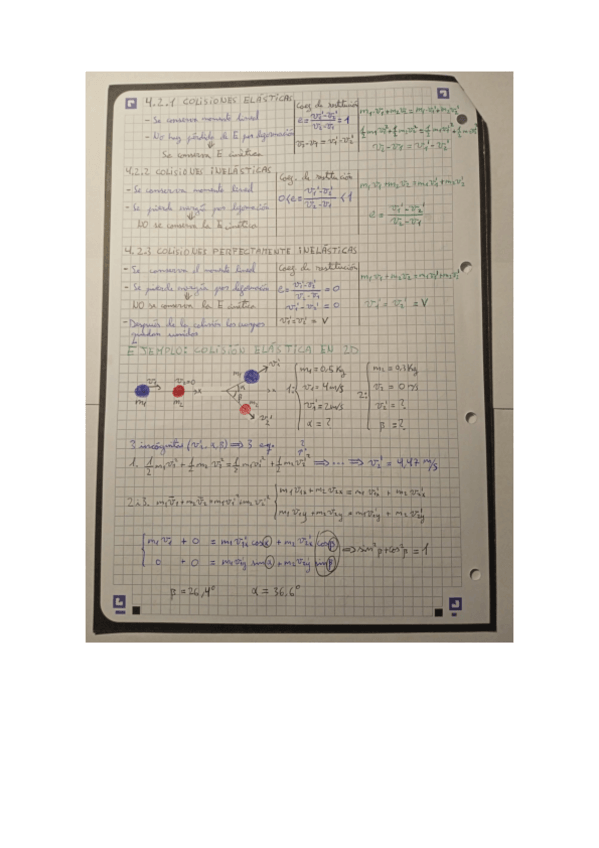 4.2.1 COLISIONES ELÁSTICAS
- Se conserva momento lineal
- No hay pérdida de E por deformación
⇓
Se conserva E cinética
Coef de restitución
e = (v₁'-v₂')/(v₂-v₁) = 1
v₂-v₁ = v₁'-v₂'
m₁v₁+m₂v₂ = m₁v₁'+m₂v₂'
½m₁v₁²+½m₂v₂² = ½m₁v₁'²+½m₂v₂'²
v₂-v₁ = v₁'-v₂'
4.2.2 COLISIONES INELÁSTICAS
- Se conserva momento lineal
- Se pierde energía por deformación
⇓
NO se conserva la E cinética
Coef. de restitución
0<e = (v₁'-v₂')/(v₂-v₁) < 1
m₁v₁+m₂v₂ = m₁v₁'+m₂v₂'
e = (v₁'-v₂')/(v₂-v₁)
4.2.3 COLISIONES PERFECTAMENTE INELÁSTICAS
- Se conserva el momento lineal
- Se pierde energía por deformación
⇓
NO se conserva la E cinética
- Después de la colisión los cuerpos
quedan unidos
Coef de restitución
e = (v₁'-v₂')/(v₂-v₁) = 0
v₁'-v₂' = 0
v₁'=v₂' = V
m₁v₁+m₂v₂ = m₁v₁'+m₂v₂'
v₁' = v₂' = V
EJEMPLO: COLISIÓN ELÁSTICA EN 2D
v₁ m₁
v₂=0 m₂
m₁ v₁' α β m₂ v₂'
1: m₁=0,5Kg
v₁=4m/s
v₁'=2m/s
α=?
2: m₂=0,3Kg
v₂=0 m/s
v₂'=?
β=?
3 incógnitas (v₂', α, β) ⟹ 3 eq.
1. ½m₁v₁²+½m₂v₂² = ½m₁v₁'²+½m₂v₂'² ⟹ ... ⟹ v₂' = 4,47 m/s
m₁v₁+m₂v₂ = m₁v₁'+m₂v₂'
m₁v₁ₓ+m₂v₂ₓ = m₁v₁ₓ' + m₂v₂ₓ'
m₁v₁y+m₂v₂y = m₁v₁y' + m₂v₂y'
m₁v₁ + 0 = m₁v₁ₓ' cos α + m₂v₂ₓ' cos β
0 + 0 = m₁v₁y' sin α + m₂v₂y' sin β
⟹ sin²β+cos²β = 1
β = 26,4° α = 36,6°